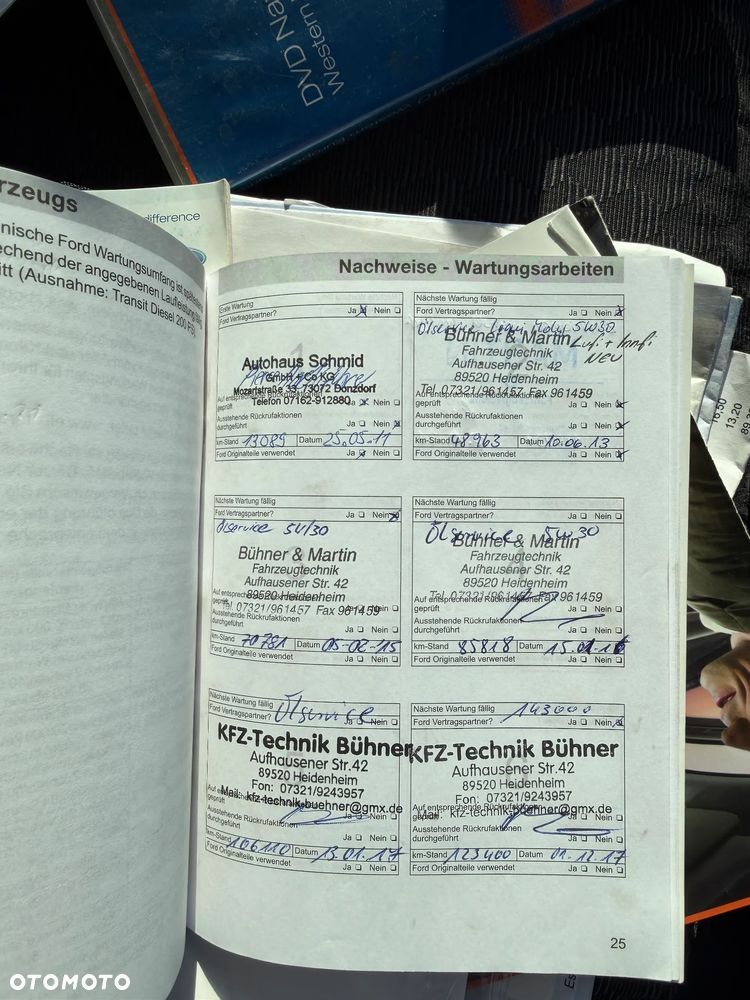 DVD Nav
Western
difference
rzeugs
nische Ford Wartungsumfang ist
echend der angegebenen Laufleistung
itt (Ausnahme: Transit Diesel 200 PS)
Nachweise - Wartungsarbeiten
Erste Wartung
Ford Vertragspartner? Ja Nein
Autohaus Schmid
GmbH & Co KG
Mozartstraße 33 73072 Donzdorf
Telefon 07162-912880
Auf entsprechende Rückrufaktionen
geprüft Ja Nein
Ausstehende Rückrufaktionen
durchgeführt Ja Nein
km-Stand 13089 Datum 25.05.11
Ford Originalteile verwendet Ja Nein
Nächste Wartung fällig
Ford Vertragspartner? Ja Nein
Ölservice Liqui Moly 5W30
Lufi + Innfi
NEU
Bühner & Martin
Fahrzeugtechnik
Aufhausener Str. 42
89520 Heidenheim
Tel. 07321/961457 Fax 961459
Auf entsprechende Rückrufaktionen
geprüft Ja Nein
Ausstehende Rückrufaktionen
durchgeführt Ja Nein
km-Stand 48.963 Datum 10.06.13
Ford Originalteile verwendet Ja Nein
Nächste Wartung fällig
Ford Vertragspartner? Ja Nein
Ölservice 5W/30
Bühner & Martin
Fahrzeugtechnik
Aufhausener Str. 42
89520 Heidenheim
Auf entsprechende Rückrufaktionen
Tel. 07321/961457 Fax 961459
geprüft Ja Nein
Ausstehende Rückrufaktionen
durchgeführt Ja Nein
km-Stand 70781 Datum 05-02-15
Ford Originalteile verwendet Ja Nein
Nächste Wartung fällig
Ford Vertragspartner? Ja Nein
Ölservice 5W30
Bühner & Martin
Fahrzeugtechnik
Aufhausener Str. 42
89520 Heidenheim
Tel. 07321/961457 Fax 961459
Auf entsprechende Rückrufaktionen
geprüft Ja Nein
Ausstehende Rückrufaktionen
durchgeführt Ja Nein
km-Stand 85818 Datum 15.01.16
Ford Originalteile verwendet Ja Nein
Nächste Wartung fällig
Ford Vertragspartner? Ja Nein
Ölservice
KFZ-Technik Bühner
Aufhausener Str.42
89520 Heidenheim
Fon: 07321/9243957
Mail: kfz-technik-buehner@gmx.de
geprüft Ja Nein
Ausstehende Rückrufaktionen
durchgeführt Ja Nein
km-Stand 106110 Datum 13.01.17
Ford Originalteile verwendet Ja Nein
Nächste Wartung fällig 143000
Ford Vertragspartner? Ja Nein
KFZ-Technik Bühner
Aufhausener Str.42
89520 Heidenheim
Fon: 07321/9243957
Auf entsprechende Rückrufaktionen
Mail: kfz-technik-buehner@gmx.de
geprüft Ja Nein
Ausstehende Rückrufaktionen
durchgeführt Ja Nein
km-Stand 123400 Datum 01.12.17
Ford Originalteile verwendet Ja Nein
25
16,50
13,20
89,
Es
OTOMOTO